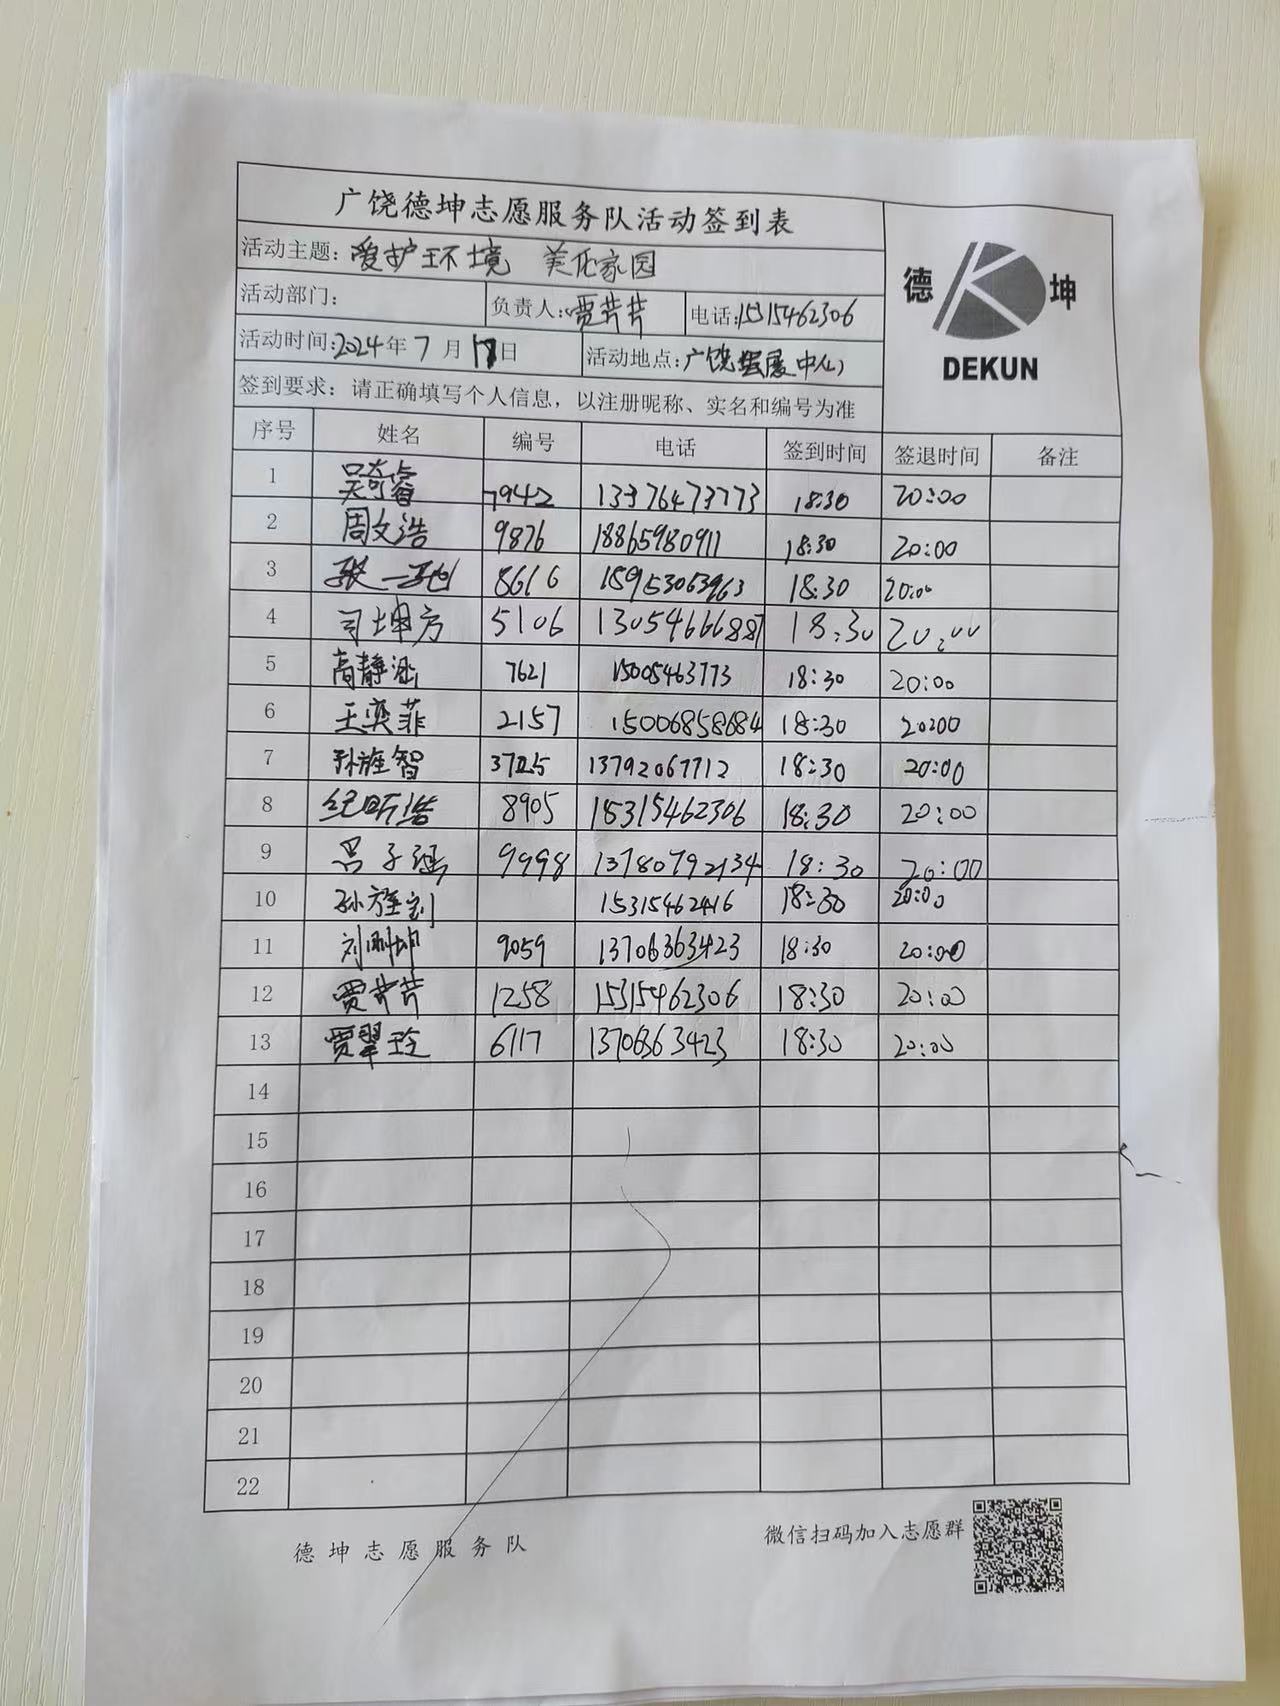 广饶德坤志愿服务队活动签到表
德 坤
DEKUN
活动主题：爱护环境 美化家园
活动部门： 负责人：贾芹芹 电话：15315462306
活动时间：2024年7月17日 活动地点：广饶会展中心
签到要求：请正确填写个人信息，以注册昵称、实名和编号为准
序号 姓名 编号 电话 签到时间 签退时间 备注
1 吴奇睿 7942 13376473773 18:30 20:00
2 周文浩 9876 18865980911 18:30 20:00
3 张一 8616 15953063963 18:30 20:00
4 司坤方 5106 13054666887 18:30 20:00
5 高静涵 7621 15005463773 18:30 20:00
6 王奕菲 2157 15006858684 18:30 20:00
7 孙旌智 3725 13792067712 18:30 20:00
8 纪昕浩 8905 15315462306 18:30 20:00
9 吕子涵 9998 13780792134 18:30 20:00
10 孙旌 15315462416 18:30 20:00
11 刘 坤 9059 13706363423 18:30 20:00
12 贾芹芹 1258 15315462306 18:30 20:00
13 贾翠玲 6117 13706363423 18:30 20:00
14
15
16
17
18
19
20
21
22
德坤志愿服务队 微信扫码加入志愿群